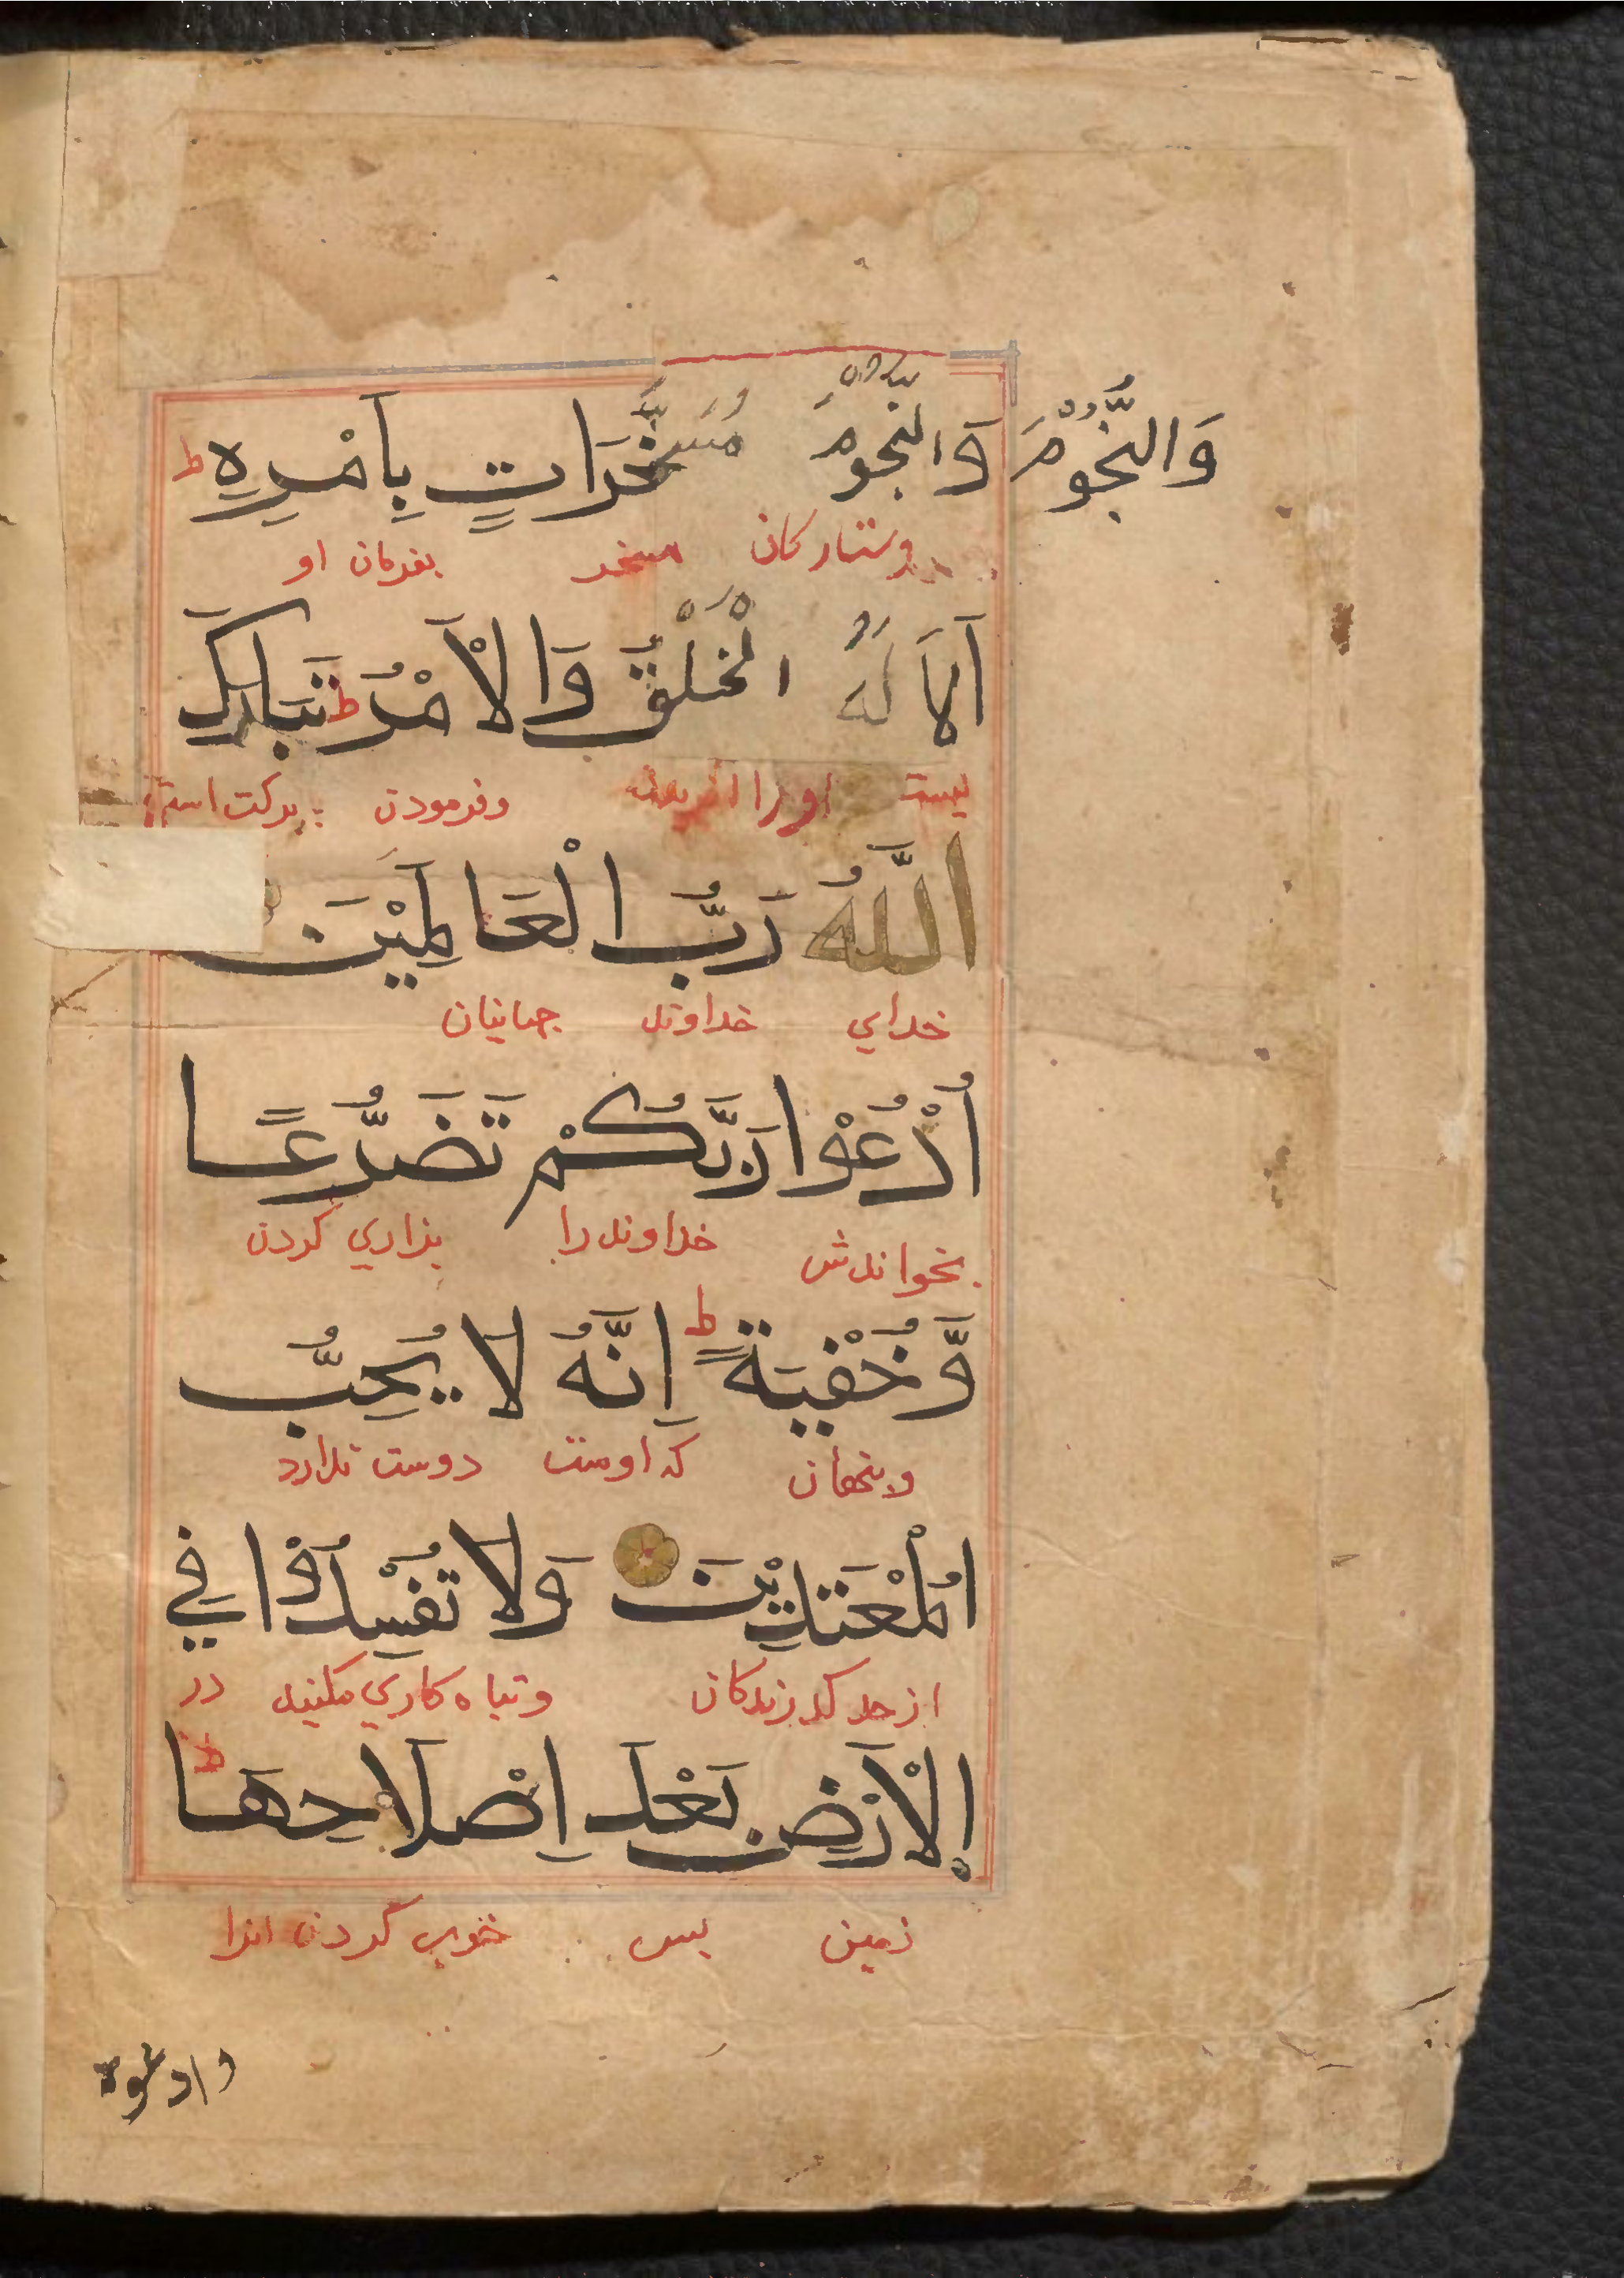 وَالنُّجُوْمَ وَالنجومَ مُسَخَّرَاتٍ بِاَمْرِهٖ ط
وستارکان مسخر بفرمان او
اَلَا لَهُ الْخَلْقُ وَالْاَمْرُ ط تَبَارَكَ
اورا وفرمودن برکت است
اللّٰهُ رَبُّ الْعَالَمِيْنَ
خدای خداوند جهانیان
اُدْعُوْا رَبَّكُمْ تَضَرُّعًا
بخوانندش خداوند را بزاري کردن
وَّخُفْيَةً ط اِنَّهُ لَا يُحِبُّ
وپنهان که اوست دوست ندارد
الْمُعْتَدِيْنَ وَلَا تُفْسِدُوْا فِي
از حد وتباه کاري مکنید در
الْاَرْضِ بَعْدَ اِصْلَاحِهَا ط
زمین پس خوب کردن انرا
وادعوه